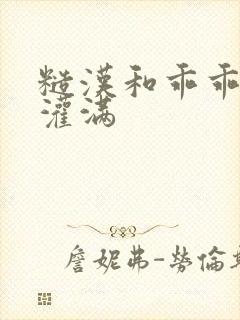 糙漢和乖乖
灌满
詹妮弗-勞倫斯